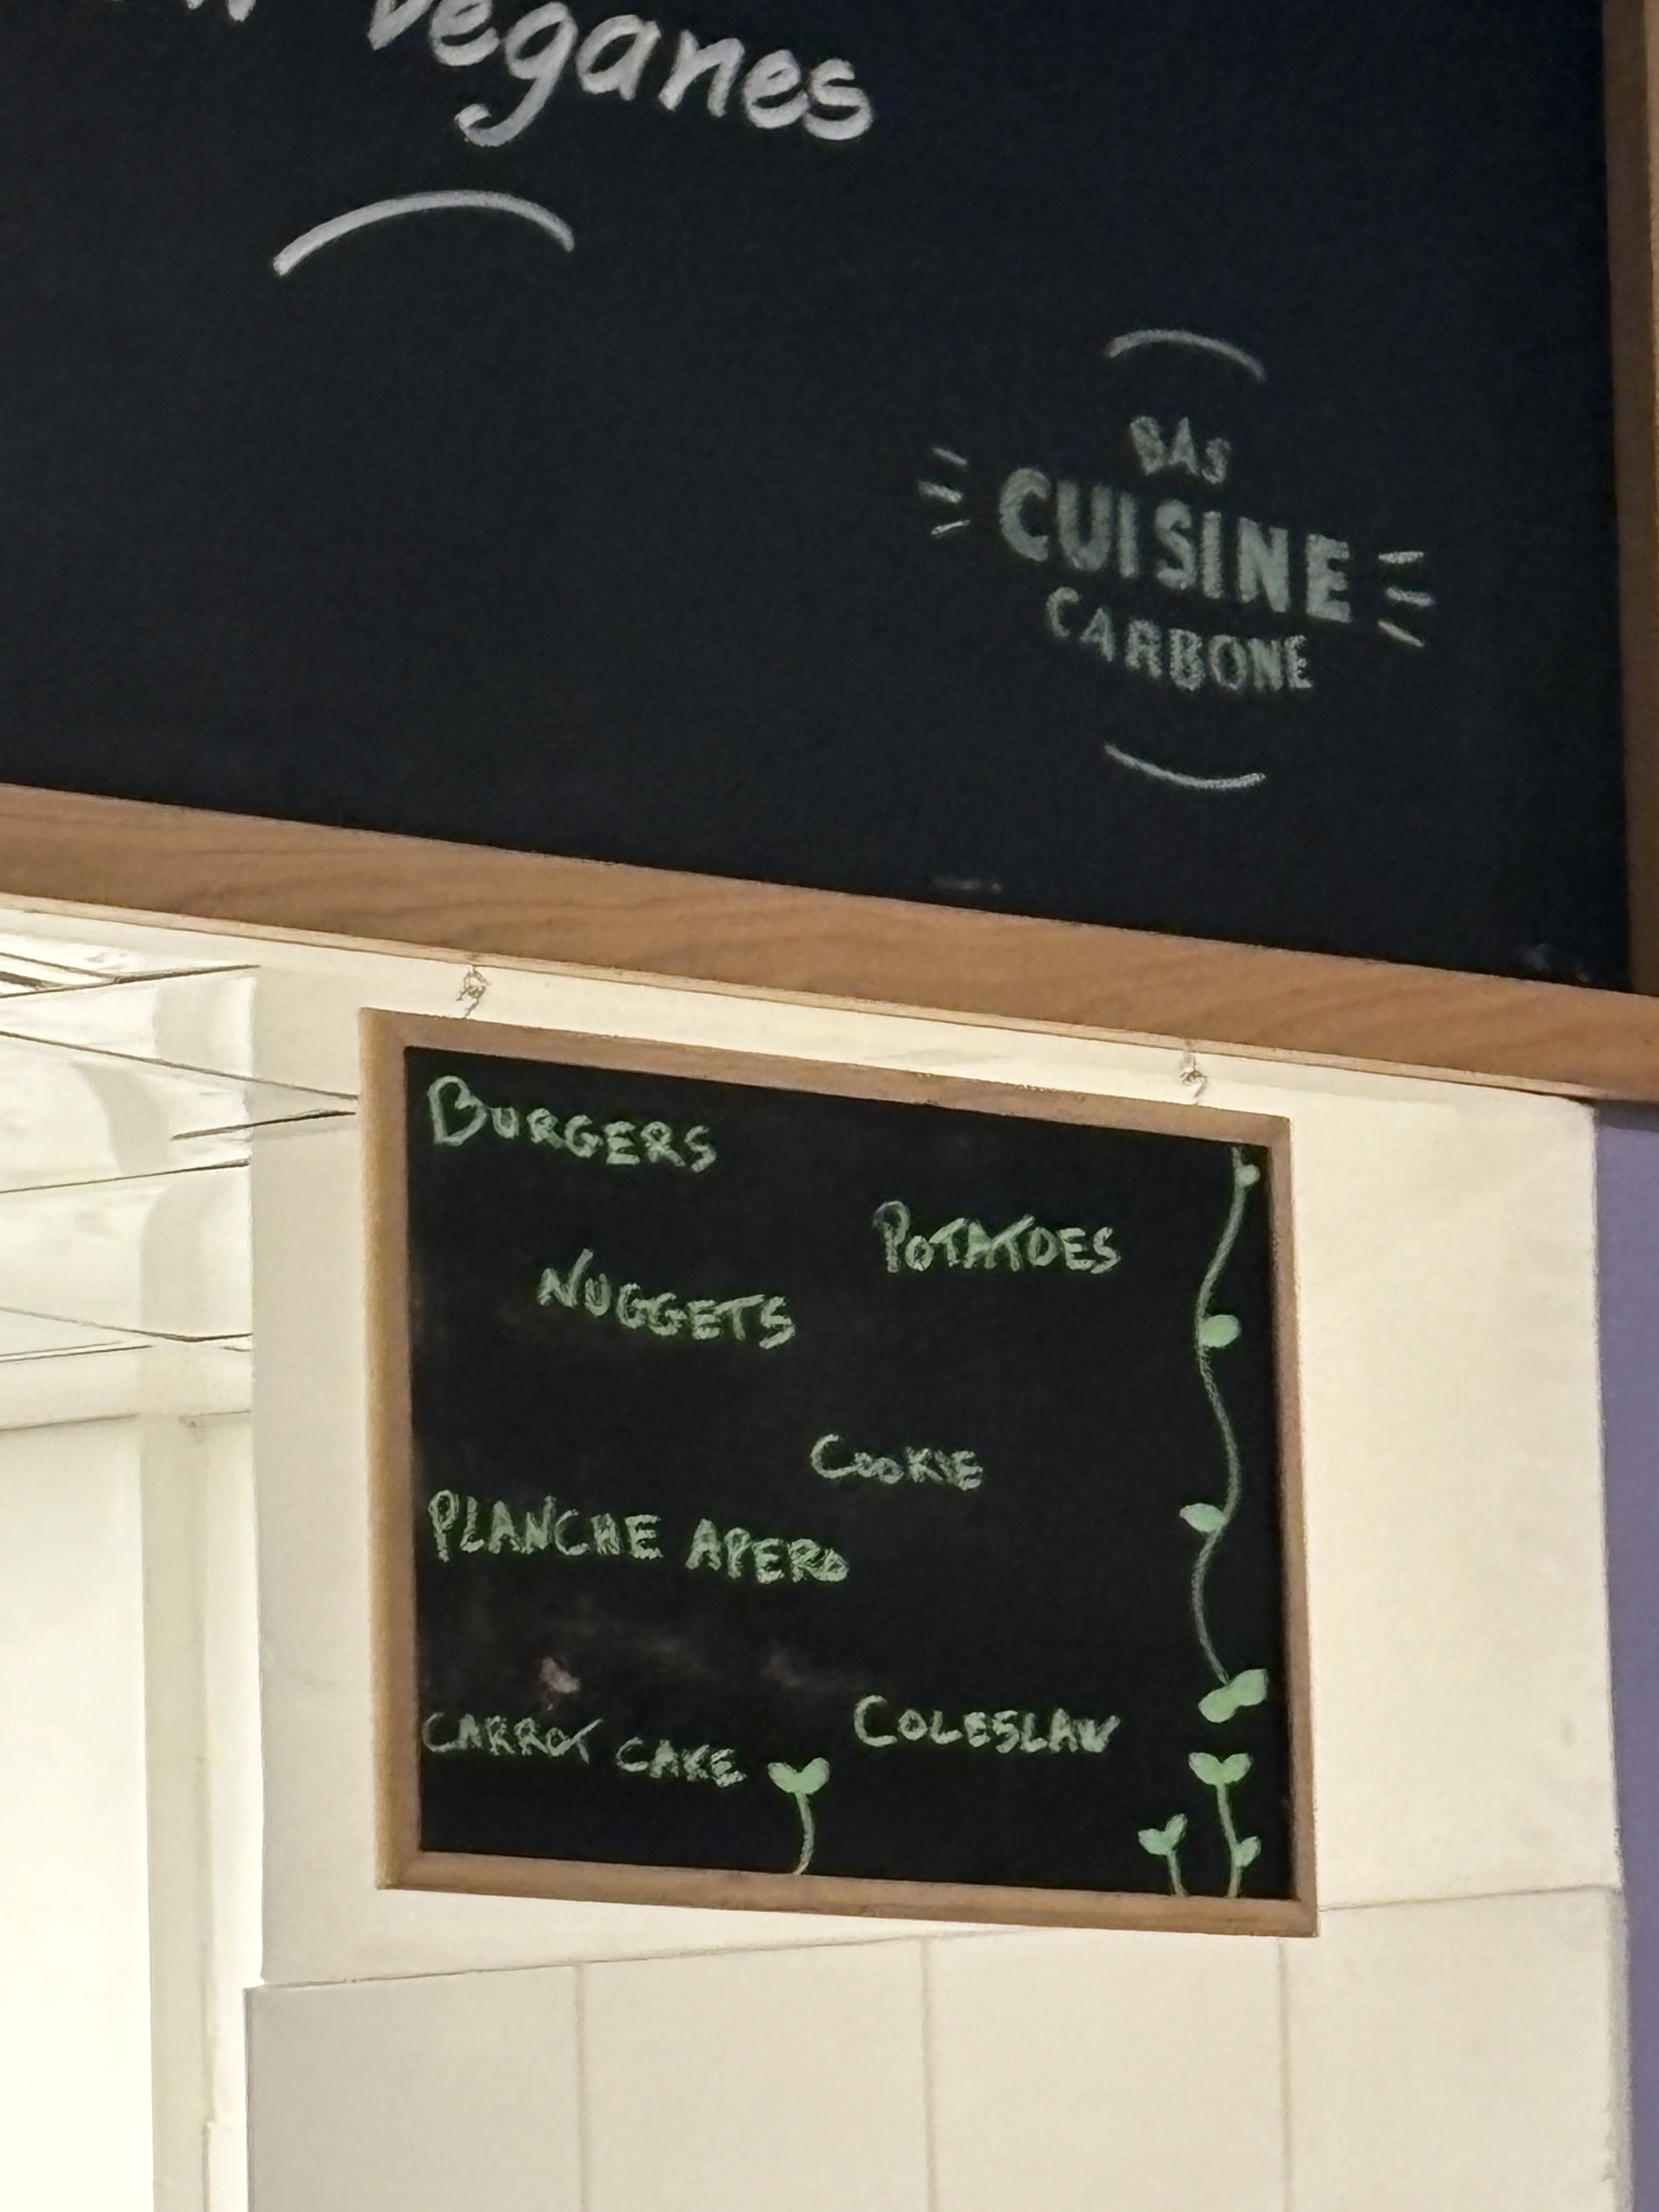 veganes
BAS
CUISINE
CARBONE
BURGERS
POTATOES
NUGGETS
COOKIE
PLANCHE APERO
COLESLAW
CARROT CAKE